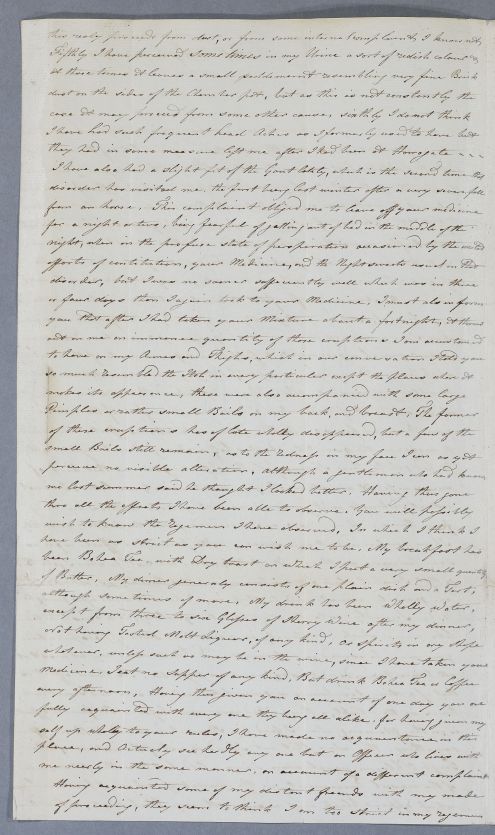 has really proceeded from dust, or from some internal Complaint, I know not,
Fifthly I have perceived sometimes in my Urine a sort of redish colour &
at those times it leaves a small sediment resembling very fine Brick
dust on the sides of the Chamber pot, but as this is not constantly the
case it may proceed from some other cause, sixthly I do not think
I have had such frequent head Aches as I formerly used to have but
they had in some measure left me after I had been at Harrogate
I have also had a slight fit of the Gout lately, which is the second time that
disorder has visited me, the first being last winter after a very severe fall
from an horse, This complaint obliged me to leave off your medicine
for a night or two, being fearful of getting out of bed in the middle of the
night, when in the profuse state of perspiration occasioned by the
efforts of constitution, your Medicine, and the Night sweats usual in that
disorder, but I was no sooner sufficiently well which was in three
or four days than I again took to your Medicine, I must also inform
you that after I had taken your Mixture about a fortnight, it threw
out on me an immence quantity of those eruptions I am accustomed
to have on my Arms and Thighs, which in our conversation I told you
so much resembled the Itch in every particular except the places where it
makes its appearance, these were also accompanied with some large
Pimples or rather small Boils on my back, and breast, The former
of these eruptions has of late wholly disappeared, but a few of the
small Boils still remain, as to the redness in my face I can as yet
perceive no visible alteration, although a gentleman who had known
me last summer said he thought I looked better. Having thus gone
thro all the effects I have been able to observe. You will possibly
wish to know the Regemen I have observed, In which I think I
have been as strict as you can wish me to be. My breakfast has
been Bohea Tea with Dry toast on which I put a very small quantity
of Butter, My dinner generally consists of one plain dish and a Tart,
although sometimes of more, My drink has been wholly Water,
except from three to six Glasses of Sherry Wine after my dinner,
Not having Tasted Malt Liquor, of any kind, or spirits in any shape
whatever, unless such as may be in the wine, since I have taken your
Medicine, I eat no supper of any kind, But drink Bohea Tea or Coffee
every afternoon, Having thus given you an account of one day you are
fully acquainted with every one they being all alike. for having given my
self up wholy to your rules, I have made no acquaintance in this
place, and Actualy see hardly any one but an Officer who lives with
me nearly in the same manner, on account of a different complaint
Having acquainted some of my distant friends with my mode
of proceeding, they seem to think I am too strict in my regemen